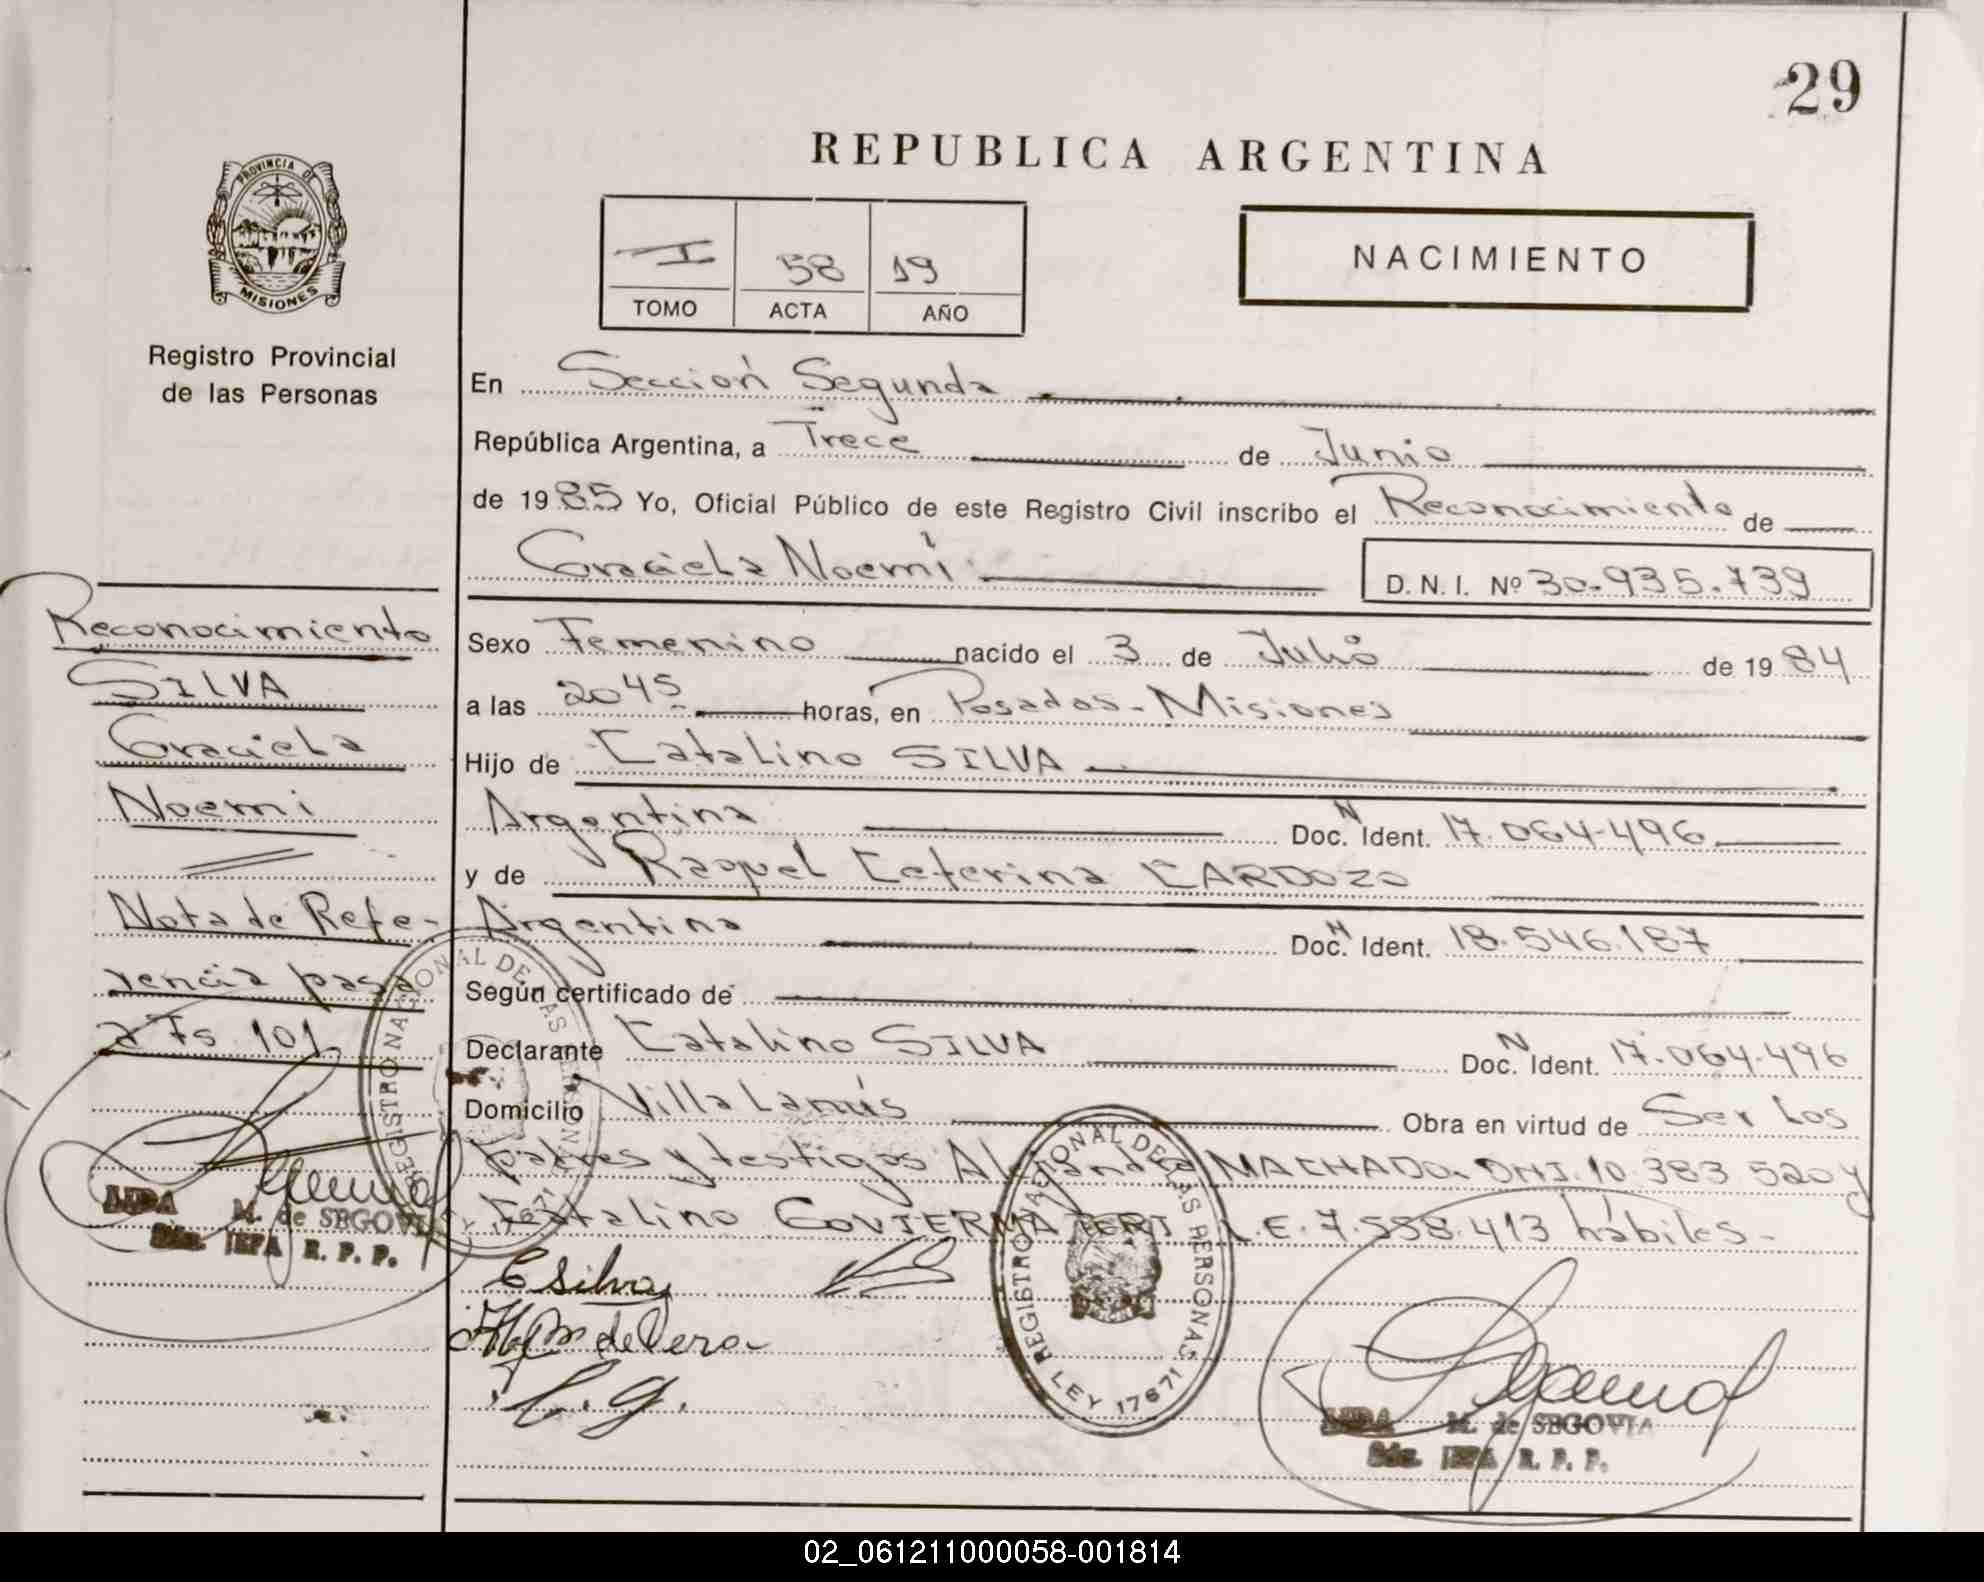 29
REPUBLICA ARGENTINA
PROVINCIA DE
MISIONES
Registro Provincial
de las Personas
I 58 19
TOMO ACTA AÑO
NACIMIENTO
En Sección Segunda
República Argentina, a Trece de Junio
de 1985 Yo, Oficial Público de este Registro Civil inscribo el Reconocimiento de
Graciela Noemi D.N.I. Nº 30.935.739
Sexo Femenino nacido el 3 de Julio de 1984
a las 2045 horas, en Posadas - Misiones
Hijo de Catalino SILVA
Argentina Doc. N Ident. 17.064.496
y de Raquel Ceferina CARDOZO
Argentina Doc. N Ident. 18.546.187
Según certificado de
Declarante Catalino SILVA Doc. N Ident. 17.064.496
Domicilio Villa Lanús Obra en virtud de Ser los
padres y testigos MACHADO DNI. 10.383.520 y
L.E. 7.558.413 hábiles.-
Reconocimiento
SILVA
Graciela
Noemi
Nota de Refe-
rencia pasa
a Fs. 101
LIDA M. de SEGOVIA
R. P. P.
C Silva
de Vera
C. G.
REGISTRO NACIONAL DE LAS PERSONAS
LEY 17671
REGISTRO NACIONAL DE LAS PERSONAS
LEY 17671
LIDA M. de SEGOVIA
R. P. P.
02_061211000058-001814